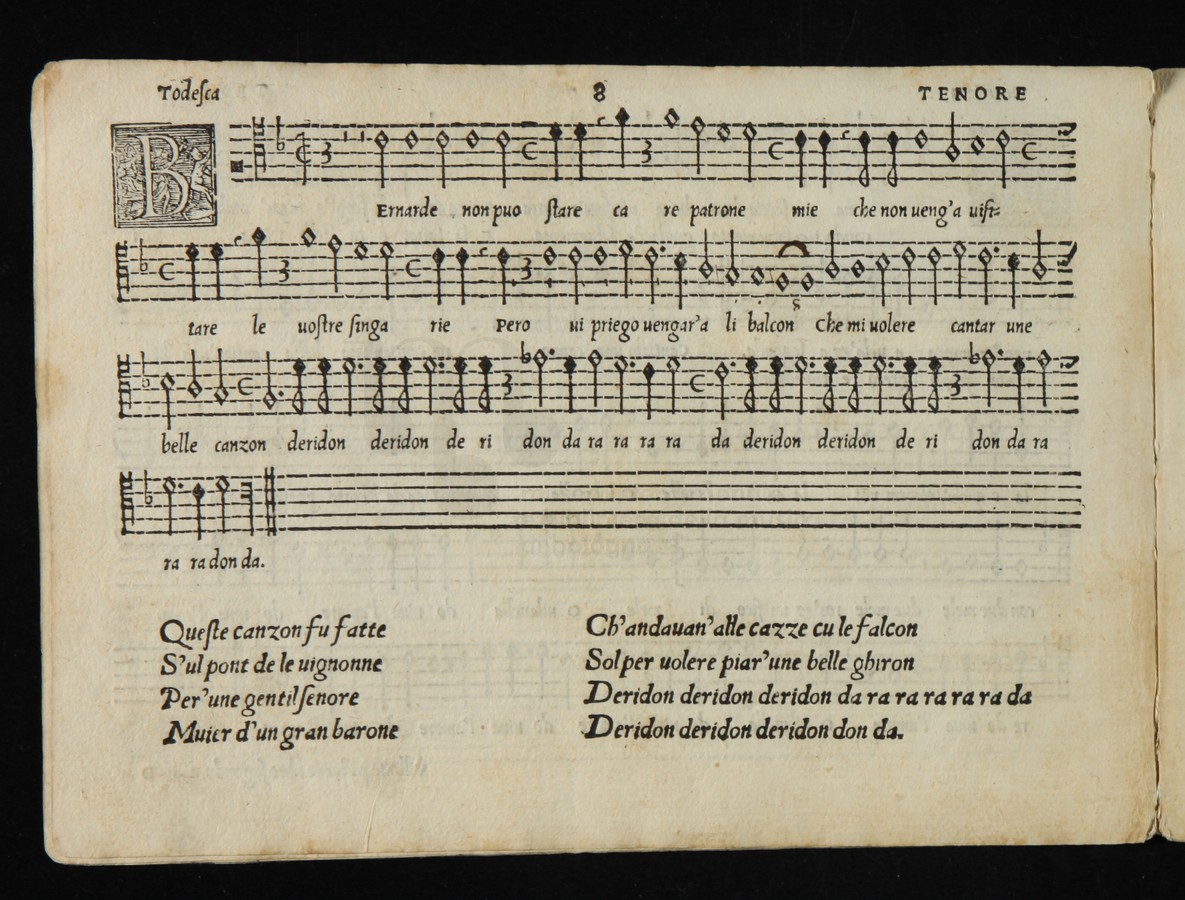 Todesca 8 TENORE
BErnarde non puo stare ca re patrone mie che non ueng'a uisi-
tare le uostre singa rie Pero ui priego uengar'a li balcon Che mi uolere cantar une
belle canzon deridon deridon de ri don da ra ra ra ra da deridon deridon de ri don da ra
ra ra don da.
Queste canzon fu fatte
S'ul pont de le uignonne
Per'une gentil senore
Muier d'un gran barone
Ch'andauan'alle cazze cu le falcon
Sol per uolere piar'une belle ghiron
Deridon deridon deridon da ra ra ra ra ra da
Deridon deridon deridon don da.